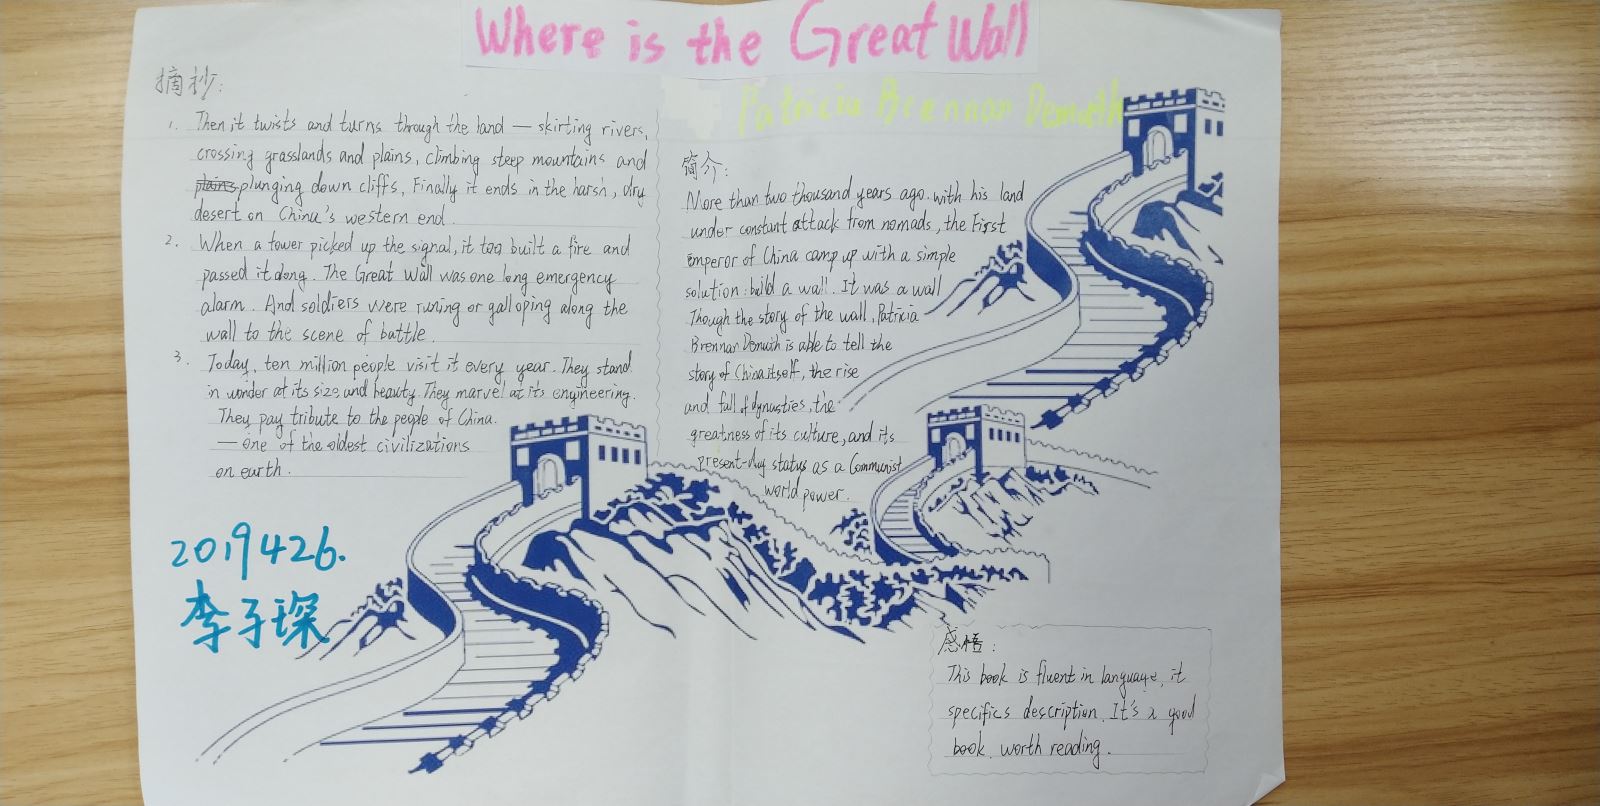 Where is the Great Wall
Patricia Brennan Demuth
摘抄:
1. Then it twists and turns through the land — skirting rivers,
crossing grasslands and plains, climbing steep mountains and
plains plunging down cliffs, Finally it ends in the harsh, dry
desert on China's western end.
2. When a tower picked up the signal, it too built a fire and
passed it along. The Great Wall was one long emergency
alarm. And soldiers were runing or galloping along the
wall to the scene of battle.
3. Today, ten million people visit it every year. They stand
in wonder at its size and beauty. They marvel at its engineering.
They pay tribute to the people of China.
— one of the oldest civilizations
on earth.
简介:
More than two thousand years ago. with his land
under constant attack from nomads, the First
Emperor of China camp up with a simple
solution: build a wall. It was a wall
Though the story of the wall, Patricia
Brennan Demuth is able to tell the
story of China itself, the rise
and fall of dynasties, the
greatness of its culture, and its
present-day status as a Communist
world power.
2019426.
李子琛
感悟:
This book is fluent in language, it
specifics description. It's a good
book. worth reading.